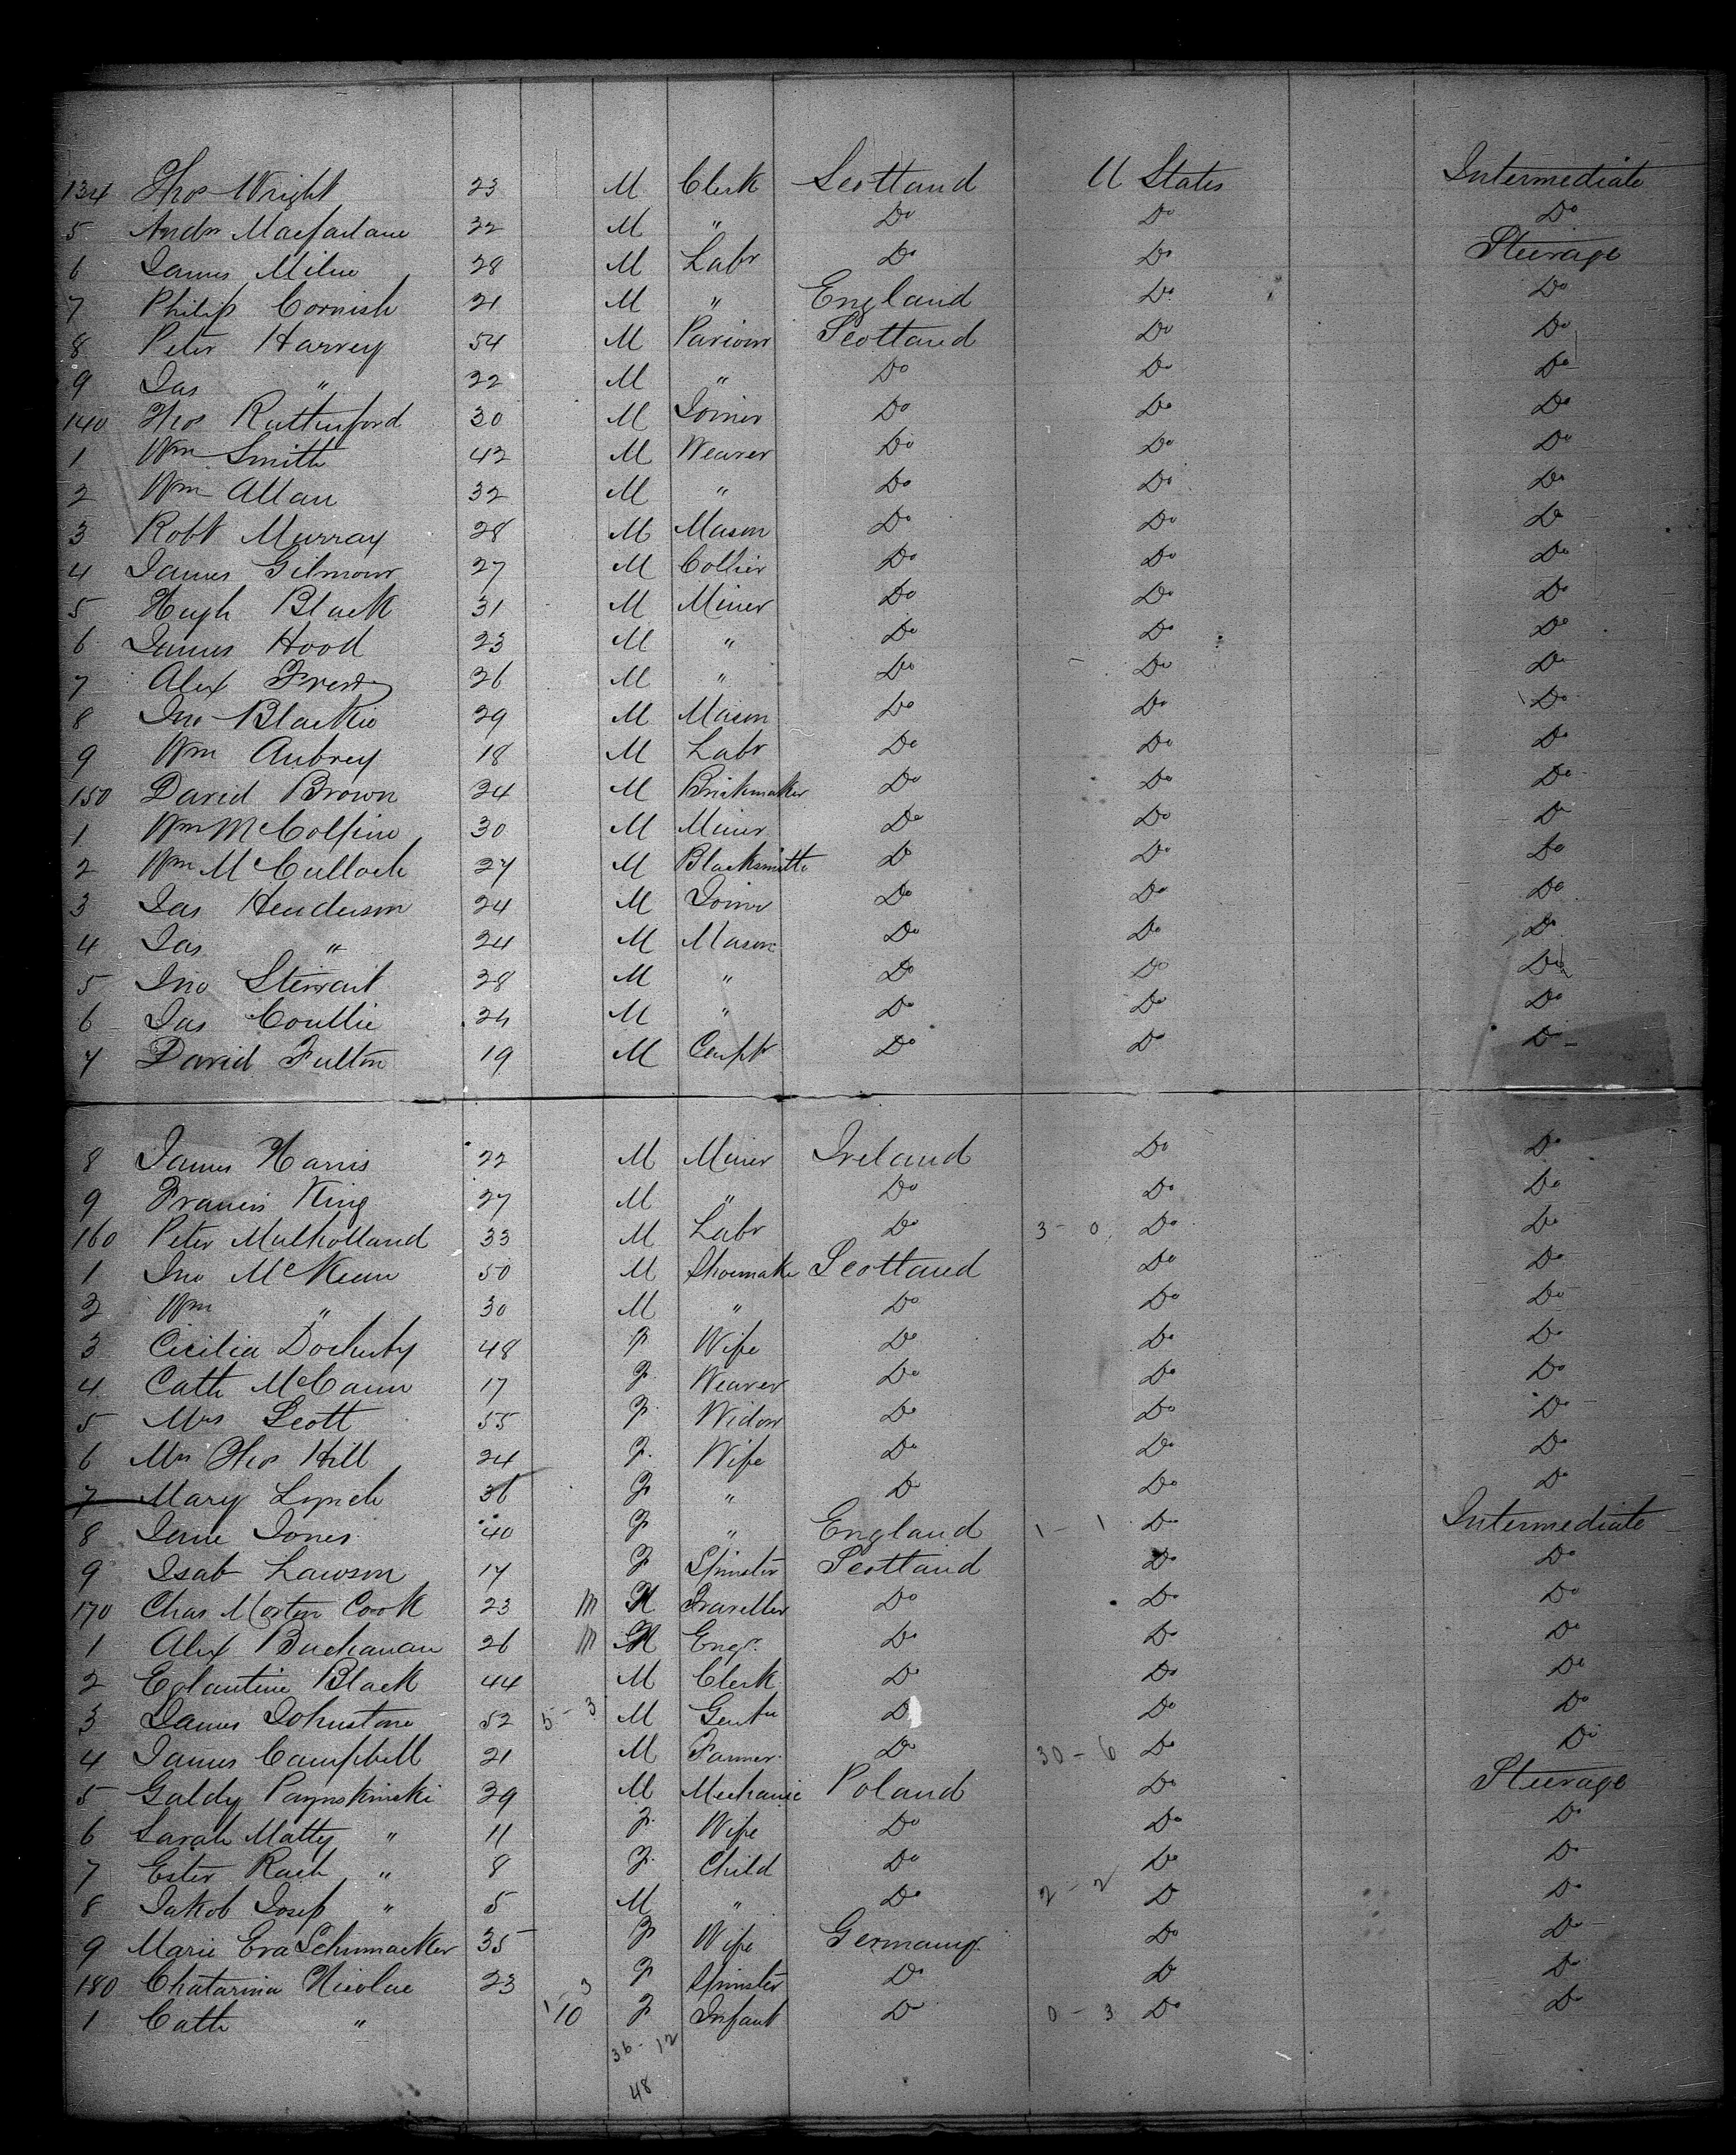 134 Thos Wright 23 M Clerk Scotland U States Intermediate
5 Andw Macfarlane 22 M " Do Do Do
6 James Milne 28 M Labr Do Do Steerage
7 Philip Cornish 21 M " England Do Do
8 Peter Harvey 54 M Paviour Scotland Do Do
9 Jas " 22 M " Do Do Do
140 Thos Rutherford 30 M Joiner Do Do Do
1 Wm Smith 42 M Weaver Do Do Do
2 Wm Allan 32 M " Do Do Do
3 Robt Murray 28 M Mason Do Do Do
4 James Gilmour 27 M Collier Do Do Do
5 Hugh Black 31 M Miner Do Do Do
6 James Hood 23 M " Do Do Do
7 Alex 26 M " Do Do Do
8 Jno Blackie 29 M Mason Do Do Do
9 Wm Aubrey 18 M Labr Do Do Do
150 David Brown 24 M Brickmaker Do Do Do
1 Wm 30 M Miner Do Do Do
2 Wm McCulloch 27 M Blacksmith Do Do Do
3 Jas Henderson 24 M Joiner Do Do Do
4 Jas " 24 M Mason Do Do Do
5 Jno Stewart 28 M " Do Do Do
6 Jas Coullie 24 M " Do Do Do
7 David Fulton 19 M Do Do Do
8 James Harris 22 M Miner Ireland Do Do
9 Francis King 27 M " Do Do Do
160 Peter Mulholland 33 M Labr Do 3 - 0 Do Do
1 Jno McKean 50 M Shoemake Scotland Do Do
2 Wm " 30 M " Do Do Do
3 Cicilia Docherty 48 F Wife Do Do Do
4 Cath McCann 17 F Weaver Do Do Do
5 Mrs Scott 55 F Widow Do Do Do
6 Mrs Thos Hill 24 F Wife Do Do Do
7 Mary Lynch 36 F " Do Do Do
8 Jane Jones 40 F " England 1 - 1 Do Intermediate
9 Isab Lawson 17 F Spinster Scotland Do Do
170 Chas Morton Cook 23 M M Traveller Do Do Do
1 Alex Buchanan 26 M M Engr Do Do Do
2 Eglantine Black 44 M Clerk Do Do Do
3 James Johnstone 52 5 - 3 M Gentn Do Do Do
4 James Campbell 21 M Farmer Do 30 - 6 Do Do
5 Galdy 29 M Mechanic Poland Do Steerage
6 Sarah Matty " 11 F Wife Do Do Do
7 Ester Rach " 8 F Child Do Do Do
8 Jakob Josep " 5 M " Do 2 - 2 Do Do
9 Marie Eva Schumacker 35 F Wife Germany Do Do
180 Chatarina Nicolae 23 F Spinster Do Do Do
1 Cath " 1 - 3 10 F Infant Do 0 - 3 Do Do
36 - 12
48